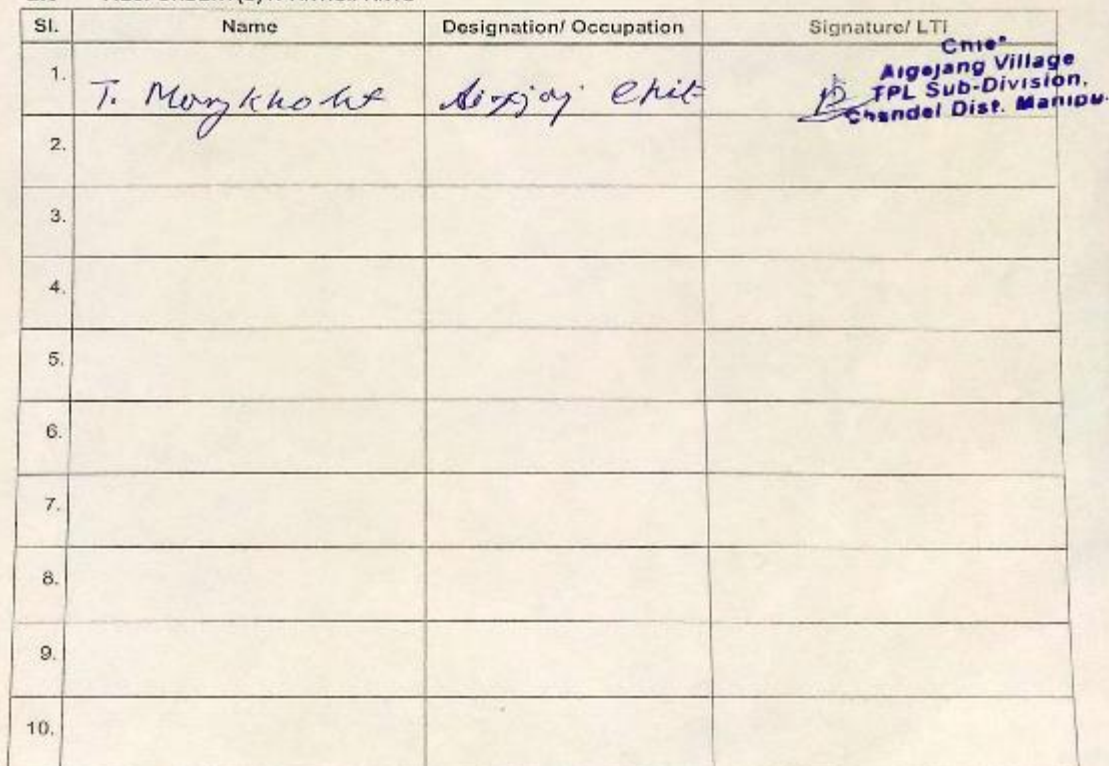 Sl. Name Designation/ Occupation Signature/ LTI
1. T. Chief
Aigejang Village
TPL Sub-Division,
Chandel Dist. Manipu
2.
3.
4.
5.
6.
7.
8.
9.
10.